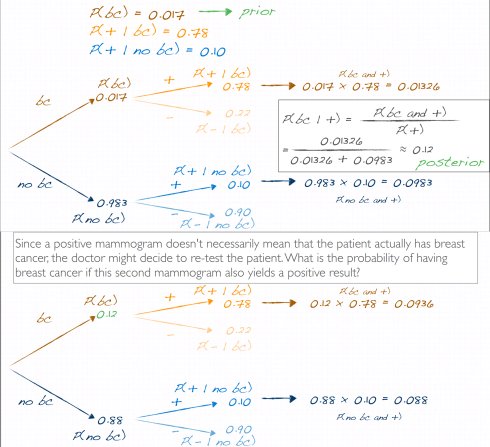 P(bc) = 0.017 → prior
P(+ | bc) = 0.78
P(+ | no bc) = 0.10
P(bc and +)
P(bc) + P(+ | bc)
0.017 0.78 → 0.017 × 0.78 = 0.01326
bc
0.22
– P(– | bc)
P(bc | +) = P(bc and +) / P(+)
= 0.01326 / 0.01326 + 0.0983 ≈ 0.12
posterior
P(+ | no bc)
no bc + 0.10 → 0.983 × 0.10 = 0.0983
0.983 P(no bc and +)
P(no bc) – 0.90
P(– | no bc)
Since a positive mammogram doesn't necessarily mean that the patient actually has breast
cancer, the doctor might decide to re-test the patient. What is the probability of having
breast cancer if this second mammogram also yields a positive result?
P(bc and +)
P(bc) + P(+ | bc)
0.12 0.78 → 0.12 × 0.78 = 0.0936
bc
0.22
– P(– | bc)
P(+ | no bc)
no bc + 0.10 → 0.88 × 0.10 = 0.088
0.88 P(no bc and +)
P(no bc) – 0.90
P(– | no bc)